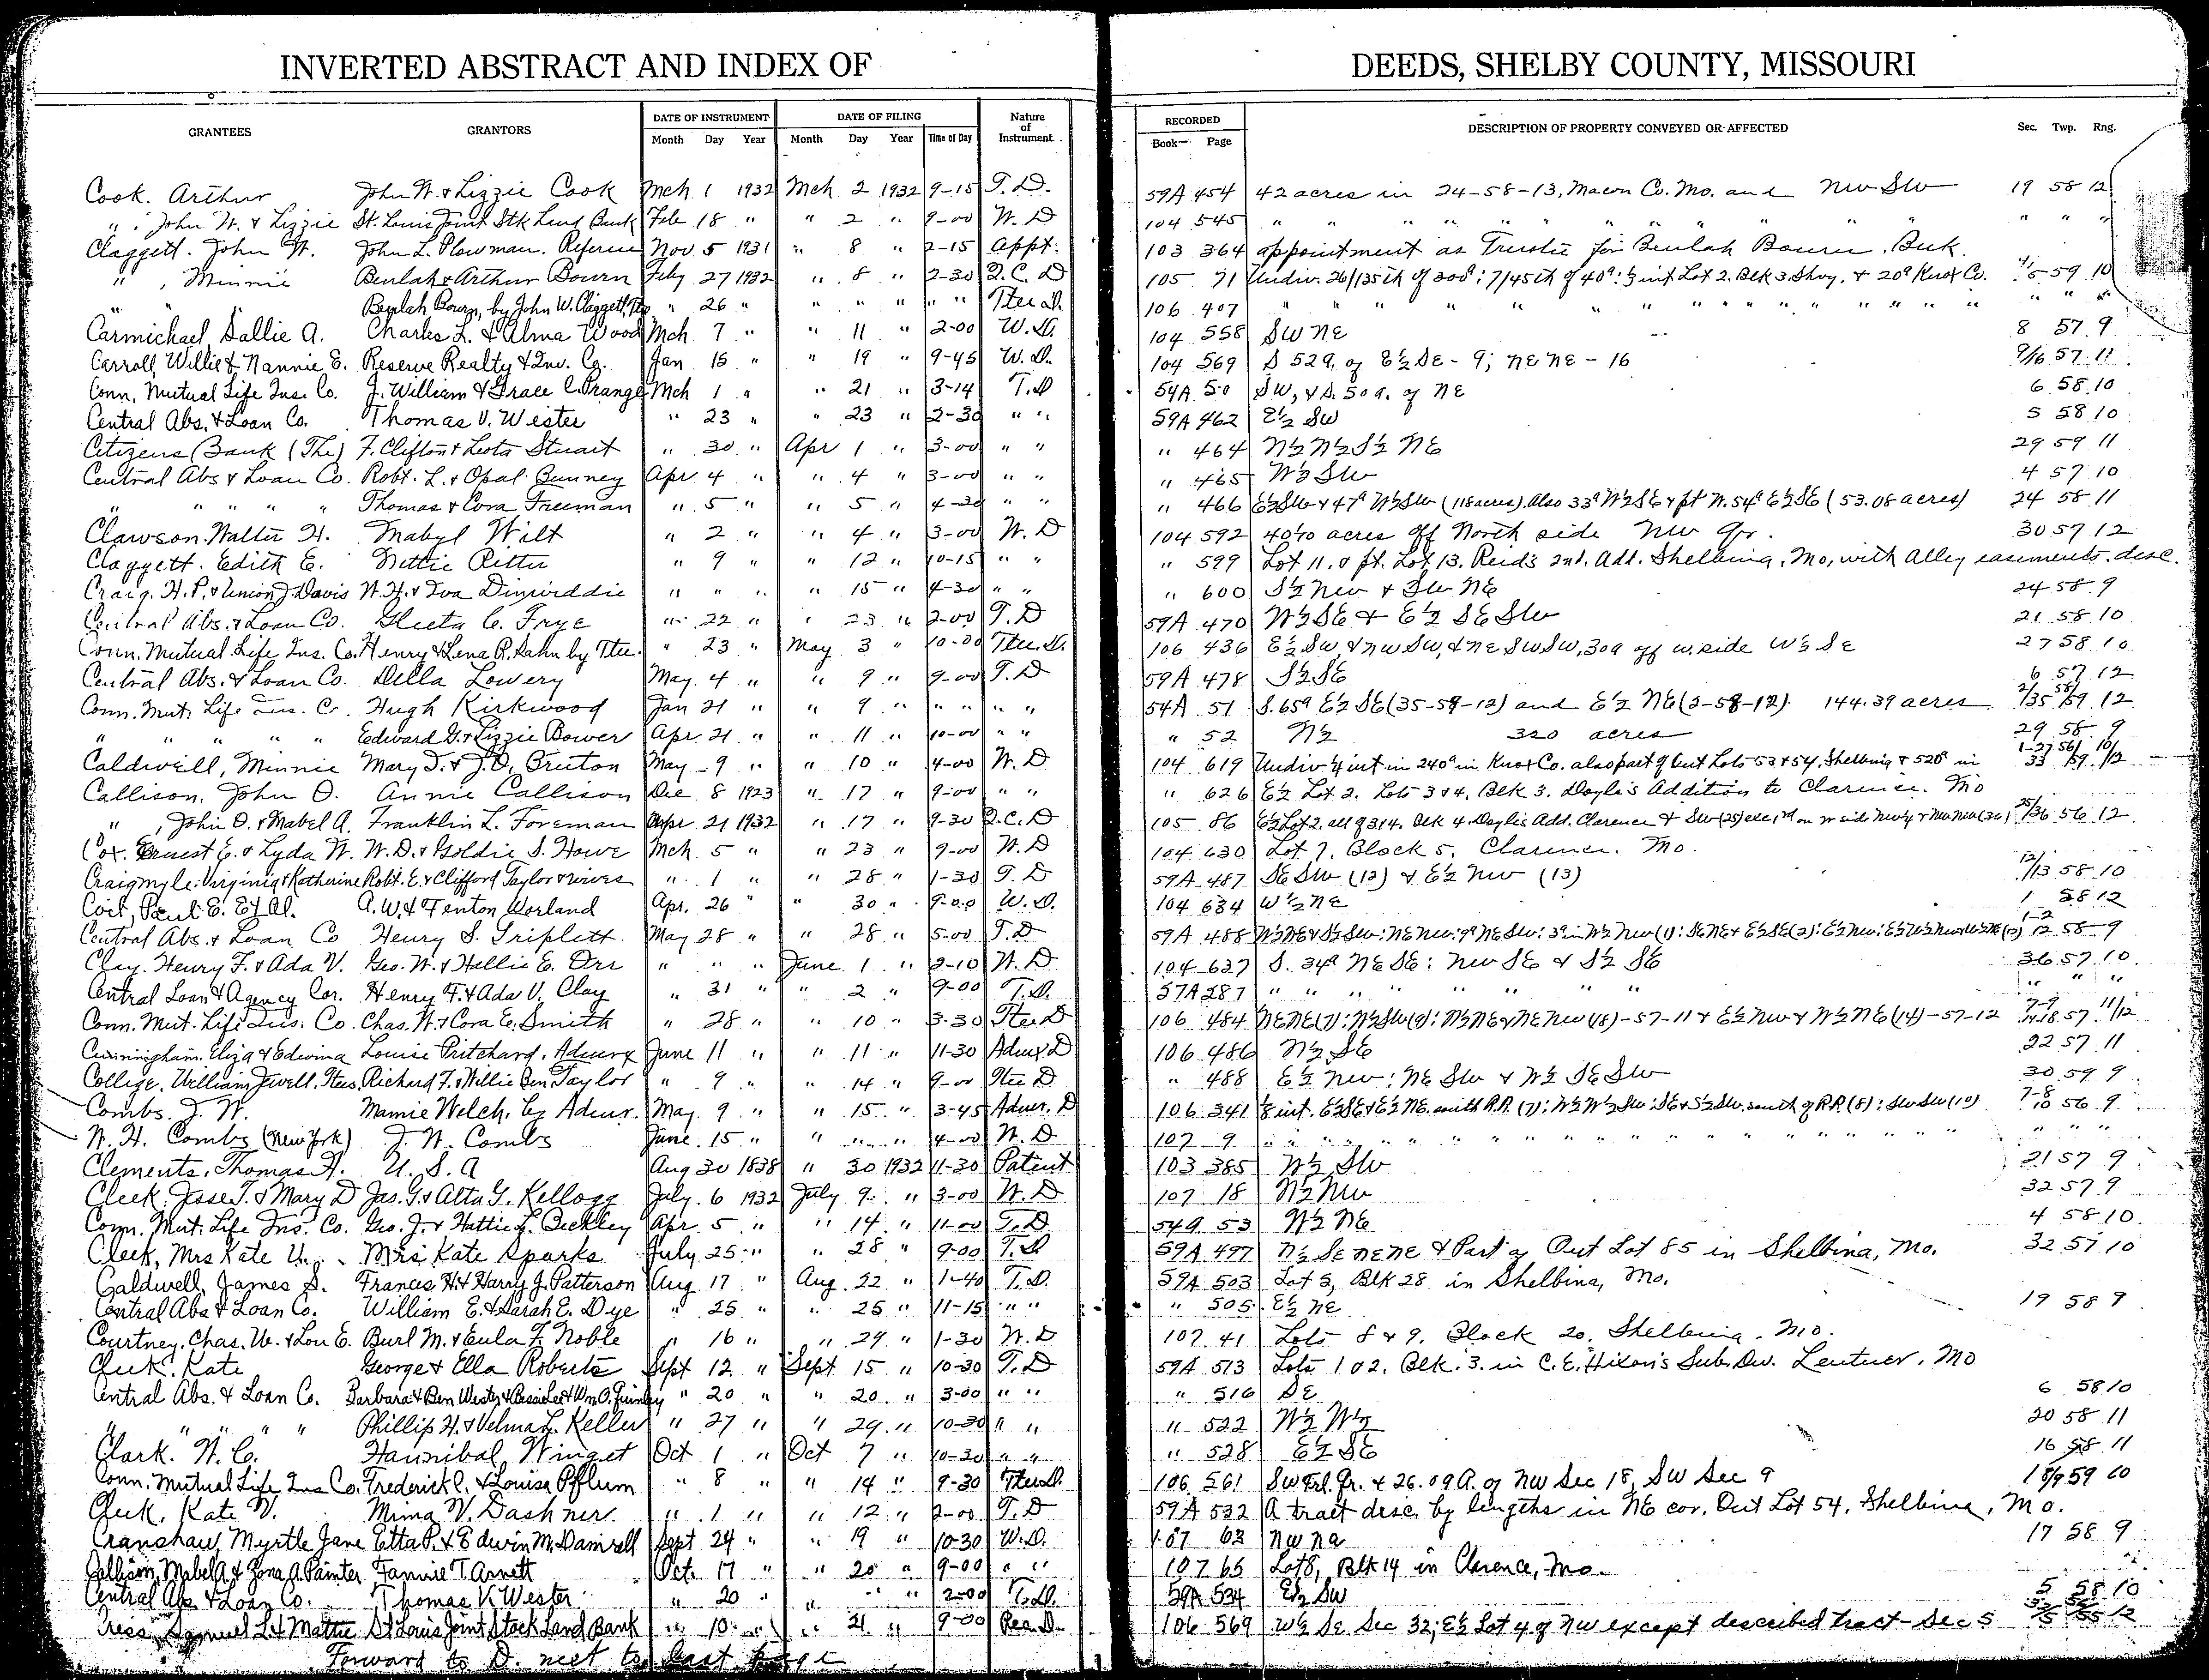 INVERTED ABSTRACT AND INDEX OF DEEDS, SHELBY COUNTY, MISSOURI
GRANTEES GRANTORS DATE OF INSTRUMENT DATE OF FILING Nature of Instrument RECORDED DESCRIPTION OF PROPERTY CONVEYED OR AFFECTED Sec. Twp. Rng.
Month Day Year Month Day Year Time of Day Book Page
Cook. Arthur John W. & Lizzie Cook Mch 1 1932 Mch 2 1932 9-15 T.D. 59A 454 42 acres in 24-58-13, Macon Co. Mo. and NW SW 19 58 12
" , John W. & Lizzie St. Louis Joint Stk Land Bank Feb 18 " " 2 " 9-00 W.D 104 545 " " " " " " " " " " "
Claggett. John W. John L. Plowman. Referee Nov 5 1931 " 8 " 2-15 Appt. 103 364 appointment as Trustee for Beulah Bourn. Bnk.
" , Minnie Beulah & Arthur Bourn Feby 27 1932 " 8 " 2-30 Q.C.D 105 71 Undiv. 26/135th of 300a; 7/45th of 40a; int Lot 2. Blk 3. & 20a Knox Co. 59 10
" Beulah Bourn, by John W. Claggett, Tte " 26 " " " " " " Ttee D. 106 407 " " " " " " "
Carmichael, Sallie A. Charles L. & Alma Wood Mch 7 " " 11 " 2-00 W.D. 104 558 SW NE 8 57 9
Carroll, Willie & Nannie E. Reserve Realty & Inv. Co. Jan 15 " " 19 " 9-45 W.D. 104 569 S 52a. of E½ SE - 9; NE NE - 16 9/16 57 11
Conn. Mutual Life Ins. Co. J. William & Grace C. Prange Mch 1 " " 21 " 3-14 T.D 54A 50 SW, & S. 50a. of NE 6 58 10
Central Abs. & Loan Co. Thomas V. Wester " 23 " " 23 " 2-30 " " 59A 462 E½ SW 5 58 10
Citizens Bank (The) F. Clifton & Leota Stuart " 30 " Apr 1 " 3-00 " " " 464 N½ N½ S½ NE 29 59 11
Central Abs & Loan Co. Robt. L. & Opal Bunney Apr 4 " " 4 " 3-00 " " " 465 W½ SW 4 57 10
" " " " Thomas & Cora Freeman " 5 " " 5 " 4-30 " " " 466 E½ SW & 47a W½ SW (118 acres). Also 33a W½ SE & pt N. 54a E½ SE (53.08 acres) 24 58 11
Clawson. Walter H. Mabyl Wilt " 2 " " 4 " 3-00 W.D 104 592 40 acres off North side NW qr. 30 57 12
Claggett. Edith E. Nettie Ritter " 9 " " 12 " 10-15 " " " 599 Lot 11. & pt. Lot 13. Reid's 2nd. Add. Shelbina, Mo, with Alley easements. desc.
Craig. H. P. & Union J Davis W. H. & Iva Dinwiddie " " " " 15 " 4-30 " " " 600 S½ NW & SW NE 24 58 9
Central Abs. & Loan Co. Gleeta C. Frye " 22 " " 23 " 2-00 T.D 59A 470 W½ SE & E½ SE SW 21 58 10
Conn. Mutual Life Ins. Co. Henry & Lena R. Rahn by Ttee. " 23 " May 3 " 10-00 Ttee.D. 106 436 E½ SW, & NW SW, & NE SW SW, 30a off W. side W½ SE 27 58 10
Central Abs. & Loan Co. Della Lowery May. 4 " " 9 " 9-00 T.D 59A 478 S½ SE 6 57 12
Conn. Mut. Life Ins. Co. Hugh Kirkwood Jan 21 " " 9 " " " " " 54A 51 S. 65a E½ SE (35-59-12) and E½ NE (2-58-12). 144.39 acres 2/35 58/59 12
" " " " " Edward G. & Lizzie Bower Apr. 21 " " 11 " 10-00 " " " 52 N½ 320 acres 29 58 9
Caldwell, Minnie Mary I. & J.D. Bruton May 9 " " 10 " 4-00 W.D 104 619 Undiv ¼ int in 240a in Knox Co. also part of Out Lots 53 & 54, Shelbina & 520a in
Callison. John O. Annie Callison Dec 8 1923 " 17 " 9-00 " " " 626 E½ Lot 2. Lots 3 & 4, Blk 3. Doyle's Addition to Clarence. Mo
" , John O. & Mabel A. Franklin L. Foreman Apr. 21 1932 " 17 " 9-30 Q.C.D 105 86 E½ Lot 2. all of 3 & 4. Blk 4. Doyle's Add. Clarence & SW (25) 25/36 56 12
Cox. Ernest E. & Lyda W. W.D. & Goldie S. Howe Mch. 5 " " 23 " 9-00 W.D 104 630 Lot 7, Block 5, Clarence. Mo.
Craigmyle. Virginia & Katherine Robt. E. & Clifford Taylor & wives " 1 " " 28 " 1-30 T.D 59A 487 SE SW (12) & E½ NW (13) 12/13 58 10
Coit, Paul E. Et Al. A.W. & Fenton Worland Apr. 26 " " 30 " 9-00 W.D. 104 634 W½ NE 1 58 12
Central Abs. & Loan Co Henry S. Triplett May 28 " " 28 " 5-00 T.D 59A 488 12 58 9
Clay. Henry F. & Ada V. Geo. W. & Hallie E. Orr " " " June 1 " 2-10 W.D 104 637 S. 34a NE SE: NW SE & S½ SE 36 57 10
Central Loan & Agency Cor. Henry F. & Ada V. Clay " 31 " " 2 " 9-00 T.D. 57A 287 " " " " " " " " "
Conn. Mut. Life Ins. Co. Chas. W. & Cora E. Smith " 28 " " 10 " 3-30 Ttee D 106 484 & E½ NW & W½ NE (14) - 57-12
Cunningham. Eliza & Edwina Louise Pritchard, Admrx June 11 " " 11 " 11-30 Admrx D 106 486 N½ SE 22 57 11
College. William Jewell. Ttees. Richard F. & Willie Ben Taylor " 9 " " 14 " 9-00 Ttee D " 488 E½ NW: NE SW & W½ SE SW 30 59 9
Combs. J. W. Mamie Welch. by Admr. May. 9 " " 15 " 3-45 Admr. D 106 341 7-8 10 56 9
W. H. Combs (New York) J. W. Combs June. 15 " " " " 4-00 W.D 107 9 " " " " " " " "
Clements, Thomas H. U. S. A Aug 30 1838 " 30 1932 11-30 Patent 103 385 W½ SW 21 57 9
Cleek. Jesse T. & Mary D Jas. G. & Alta G. Kellogg July. 6 1932 July 9 " 3-00 W.D 107 18 N½ NW 32 57 9
Conn. Mut. Life Ins. Co. Geo. J. & Hattie L. Beckley Apr 5 " " 14 " 11-00 T.D 54A 53 W½ NE 4 58 10
Cleek, Mrs Kate V. Mrs Kate Sparks July 25 " " 28 " 9-00 T.D 59A 497 N½ SE NE NE & Part of Out Lot 85 in Shelbina, Mo. 32 57 10
Caldwell, James S. Frances H. & Harry J. Patterson Aug. 17 " Aug. 22 " 1-40 T.D. 59A 503 Lot 5, Blk 28 in Shelbina, Mo.
Central Abs & Loan Co. William E. & Sarah E. Dye " 25 " " 25 " 11-15 " " " 505 E½ NE 19 58 9
Courtney, Chas. W. & Lou E. Burl M. & Eula F. Noble " 16 " " 29 " 1-30 W.D 107 41 Lots 8 & 9. Block 20, Shelbina. Mo.
Cleek. Kate George & Ella Roberts Sept 12. " Sept 15 " 10-30 T.D 59A 513 Lots 1 & 2. Blk. 3. in C.E. Hixon's Sub. Div. Lentner, Mo
Central Abs. & Loan Co. Barbara & Ben Wester & Bessie Lee & Wm. O. " 20 " " 20 " 3-00 " " " 516 SE 6 58 10
" " " " Phillip H. & Velma L. Keller " 27 " " 29 " 10-30 " " " 522 W½ W½ 20 58 11
Clark. W. C. Hannibal Winget Oct 1 " Oct 7 " 10-30 " " " 528 E½ SE 16 58 11
Conn. Mutual Life Ins Co. Frederick C. & Louise Pflum " 8 " " 14 " 9-30 Ttee D. 106 561 SW Frl. Qr. & 26.09 A. of NW Sec 18, SW Sec 9 18/9 59 10
Cleek. Kate V. Mima V. Dashner " 1 " " 12 " 2-00 T.D 59A 532 A tract desc. by lengths in NE cor. Out Lot 54, Shelbina, Mo.
Cranshaw, Myrtle Jane Etta P. & Edwin M. Damrell Sept 24 " " 19 " 10-30 W.D. 107 63 NW NE 17 58 9
Callison, Mabel A. & Zona A. Painter Fannie T. Arnett Oct. 17 " " 20 " 9-00 " " 107 65 Lot 8, Blk 14 in Clarence, Mo.
Central Abs & Loan Co. Thomas V. Wester " 20 " " " " 2-00 T.D. 59A 534 E½ SW 5 58 10
Cress, Samuel L. & Mattie St Louis Joint Stock Land Bank " 10 " " 21 " 9-00 106 569 W½ SE Sec 32; E½ Lot 4 of NW except described tract - Sec 5
Forward to D. next to last page